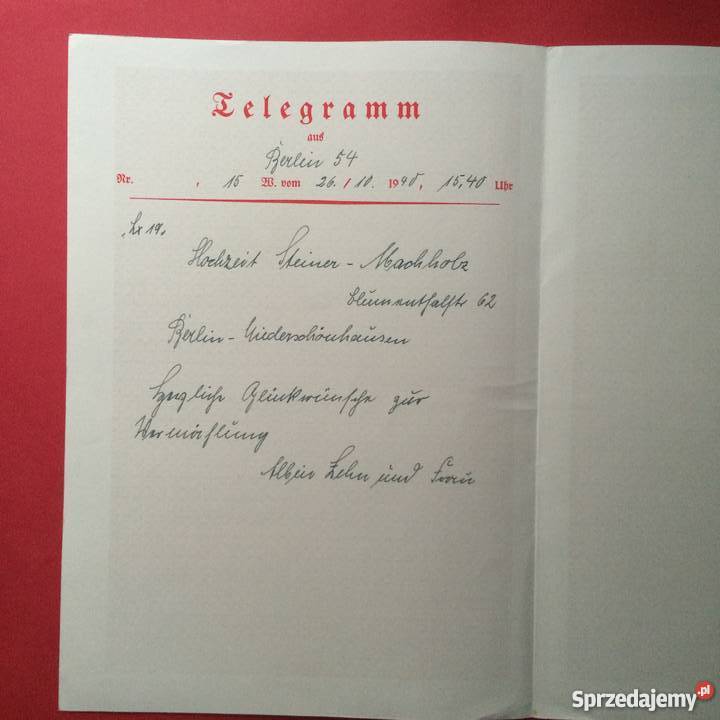 Telegramm
aus
Berlin 54
Nr. , 15 W. vom 26. / 10. 1940, 15,40 Uhr
„Lx 19„
Hochzeit Steiner - Machholz
Blumenthalstr 62
Berlin - Niederschönhausen
Herzliche Glückwünsche zur
Vermählung
Albin Zehn und Frau
Sprzedajemy.pl